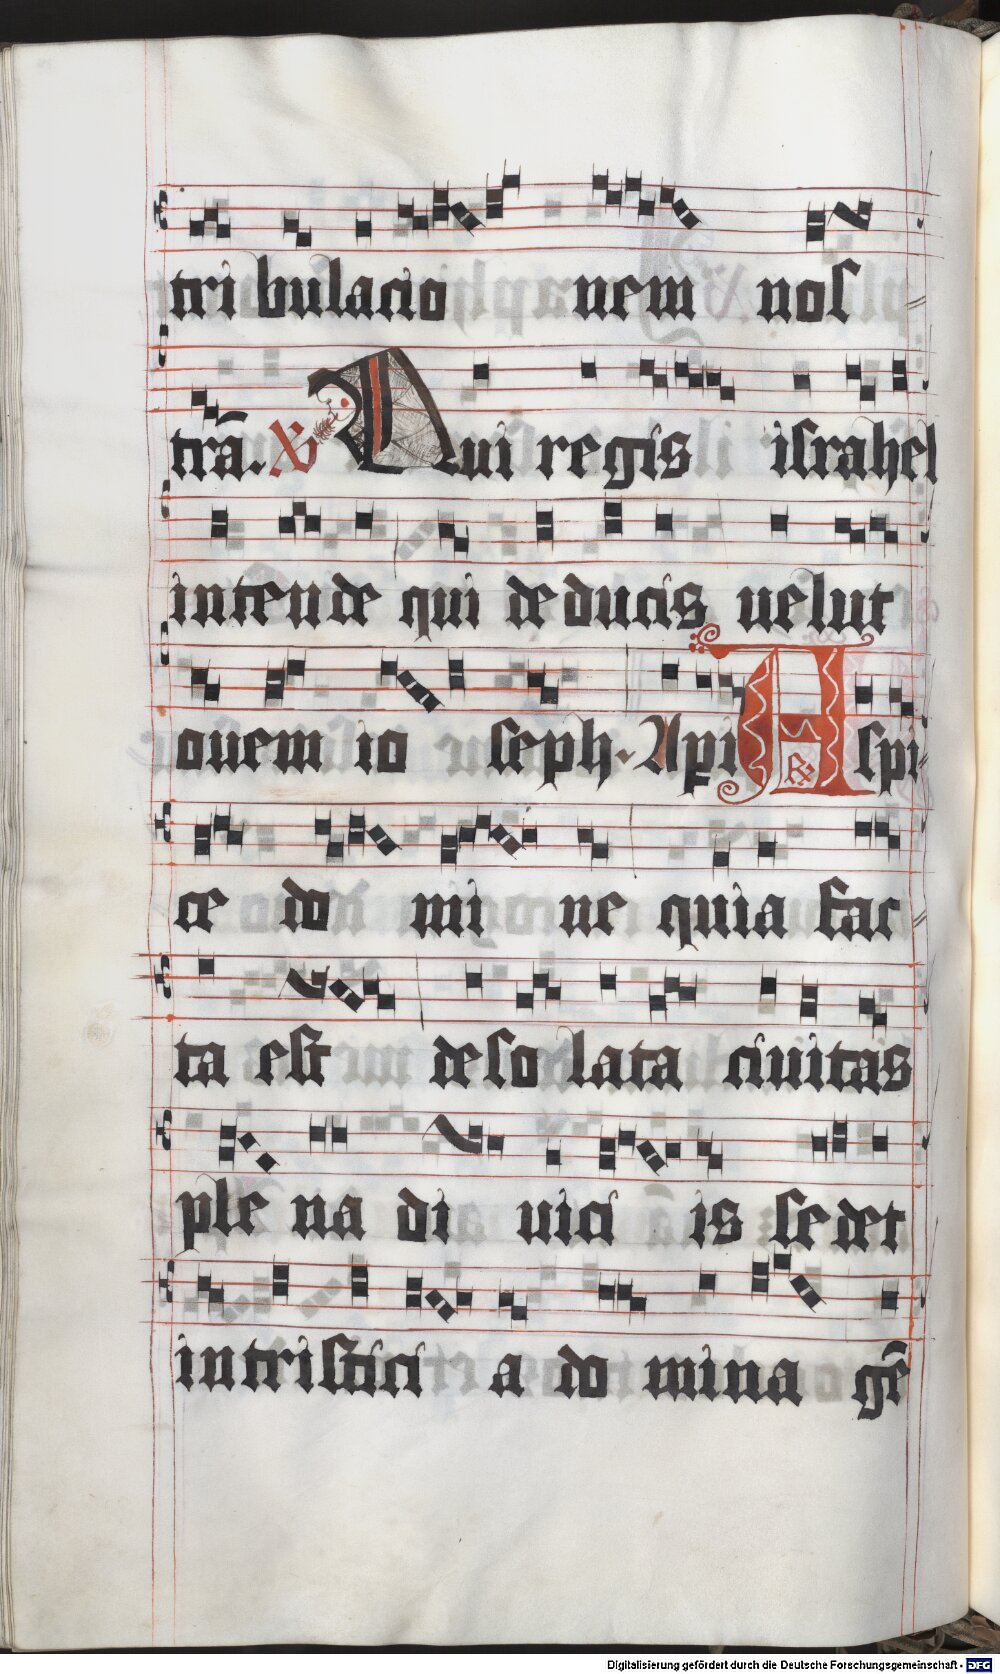 tribulacio nem nos
trā. ℣ Qui regis israhel
intende qui deducis uelut
ouem io seph. Api Aspi
ce do mi ne quia fac
ta est deso lata ciuitas
ple na di uici is sedet
in tristici a do mina gē
Digitalisierung gefördert durch die Deutsche Forschungsgemeinschaft - DFG